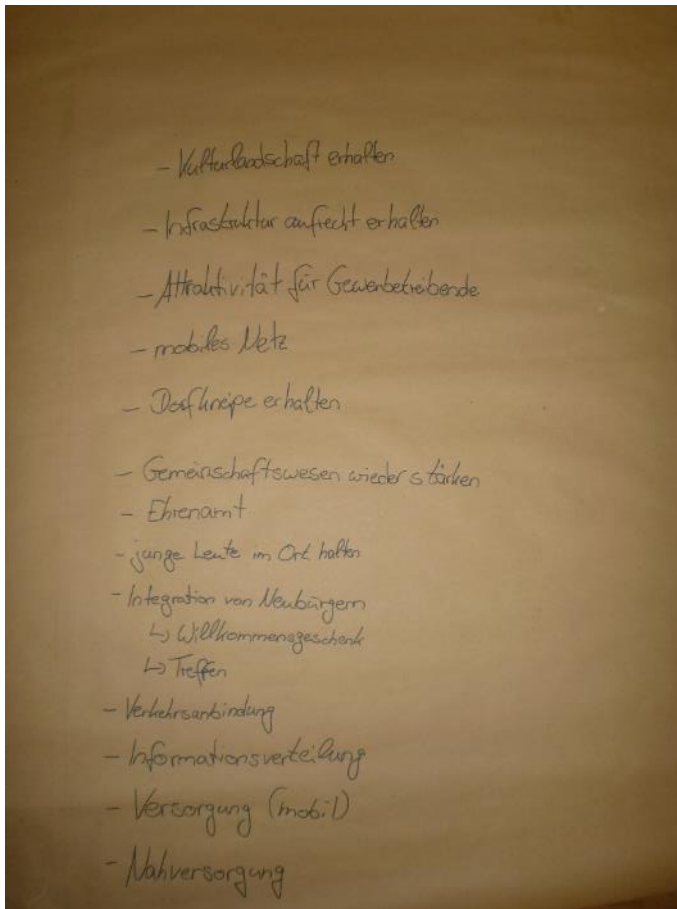 - Kulturlandschaft erhalten
- Infrastruktur aufrecht erhalten
- Attraktivität für Gewerbetreibende
- mobiles Netz
- Dorfkneipe erhalten
- Gemeinschaftswesen wieder stärken
- Ehrenamt
- junge Leute im Ort halten
- Integration von Neubürgern
↳ Willkommensgeschenk
↳ Treffen
- Verkehrsanbindung
- Informationsverteilung
- Versorgung (mobil)
- Nahversorgung